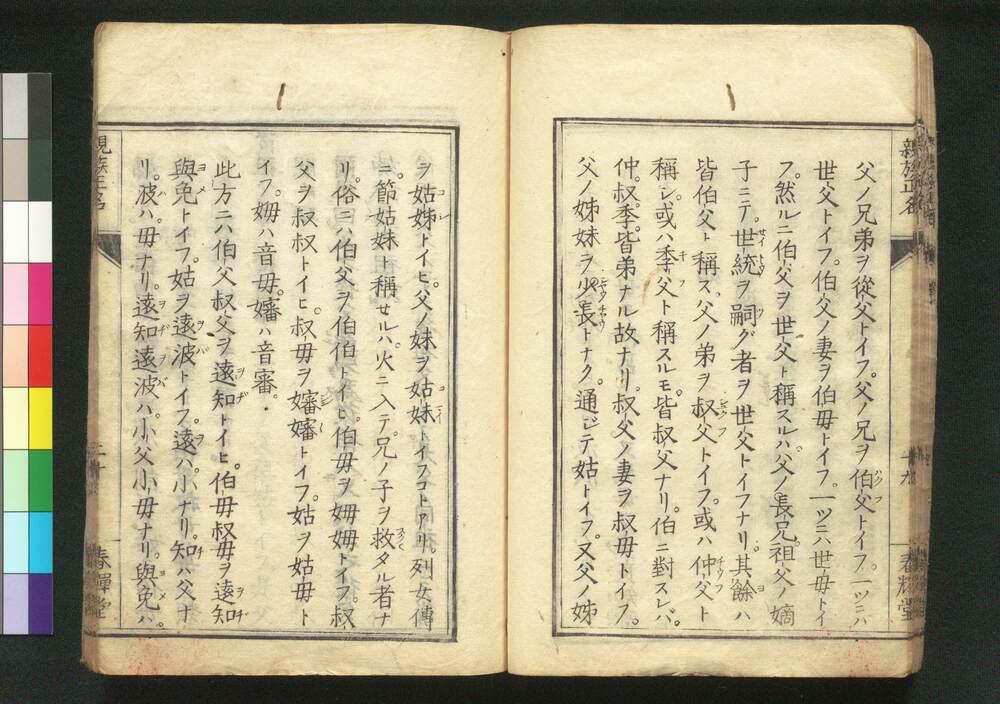 父ノ兄弟ヲ從父トイフ。父ノ兄ヲ伯父トイフ。一ツニハ
世父トイフ。伯父ノ妻ヲ伯母トイフ。一ツニハ世母トイ
フ。然ルニ伯父ヲ世父ト稱スルハ。父ノ長兄。祖父ノ嫡
子ニテ。世統ヲ嗣グ者ヲ世父トイフナリ。其餘ハ
皆伯父ト稱ス。父ノ弟ヲ叔父トイフ。或ハ仲父ト
稱シ。或ハ季父ト稱スルモ。皆叔父ナリ。伯ニ對スレバ。
仲。叔。季。皆弟ナル故ナリ。叔父ノ妻ヲ叔母トイフ。
父ノ姊妹ヲ少長トナク。通ジテ姑トイフ。又父ノ姊
親族正名
十九
春輝堂
ヲ姑姊トイヒ。父ノ妹ヲ姑妹トイフコトアリ。列女傳
ニ節姑妹ト稱セルハ。火ニ入テ。兄ノ子ヲ救タル者ナ
リ。俗ニハ伯父ヲ伯伯トイヒ。伯母ヲ姆姆トイフ。叔
父ヲ叔叔トイヒ。叔母ヲ嬸嬸トイフ。姑ヲ姑母ト
イフ。姆ハ音母。嬸ハ音審。
此方ニハ伯父叔父ヲ遠知トイヒ。伯母叔母ヲ遠知
與免トイフ。姑ヲ遠波トイフ。遠ハ小ナリ。知ハ父ナ
リ。波ハ。母ナリ。遠知遠波ハ。小父小母ナリ。與免ハ。
親族正名
二十
春輝堂